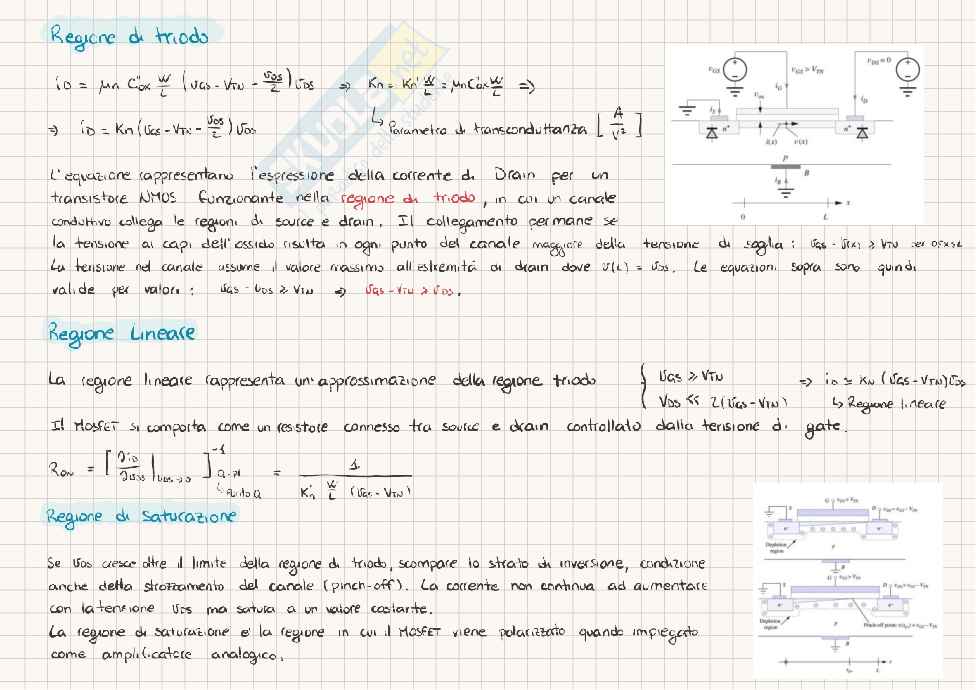 Regione di triodo
iD = μn C"ox W/L (vGS - VTN - vDS/2) vDS ⇒ Kn = Kn' W/L = μn C"ox W/L ⇒
⇒ iD = Kn (vGS - VTN - vDS/2) vDS
↳ Parametro di transconduttanza [A/V²]
L'equazione rappresentano l'espressione della corrente di Drain per un
transistore NMOS funzionante nella regione di triodo, in cui un canale
conduttivo collega le regioni di source e drain. Il collegamento permane se
la tensione ai capi dell'ossido risulta in ogni punto del canale maggiore della tensione di soglia: vGS - v(x) ≥ VTN per 0≤x≤L
La tensione nel canale assume il valore massimo all'estremità di drain dove v(L) = vDS. Le equazioni sopra sono quindi
valide per valori: vGS - vDS ≥ VTN ⇒ vGS - VTN ≥ vDS.
vGS
vGS > VTN
vDS ≈ 0
iG
iS
iD
vox
n+
n+
i(x)
v(x)
P
B
iB
0
L
x
Regione Lineare
La regione lineare rappresenta un'approssimazione della regione triodo { vGS ≥ VTN
VDS << 2(vGS - VTN)
⇒ iD ≅ KN (vGS - VTN) vDS
↳ Regione lineare
Il MOSFET si comporta come un resistore connesso tra source e drain controllato dalla tensione di gate.
RON = [∂iD/∂vDS |vDS→0]⁻¹ Q-pt = 1 / (K'n W/L (vGS - VTN))
↳ Punto Q
Regione di saturazione
Se vDS cresce oltre il limite della regione di triodo, scompare lo strato di inversione, condizione
anche detta strozzamento del canale (pinch-off). La corrente non continua ad aumentare
con la tensione vDS ma satura a un valore costante.
La regione di saturazione e' la regione in cui il MOSFET viene polarizzato quando impiegato
come amplificatore analogico.
S
D
Depletion region
P
B
S
D
Depletion region
P
B
L
x
SKUOLA.net